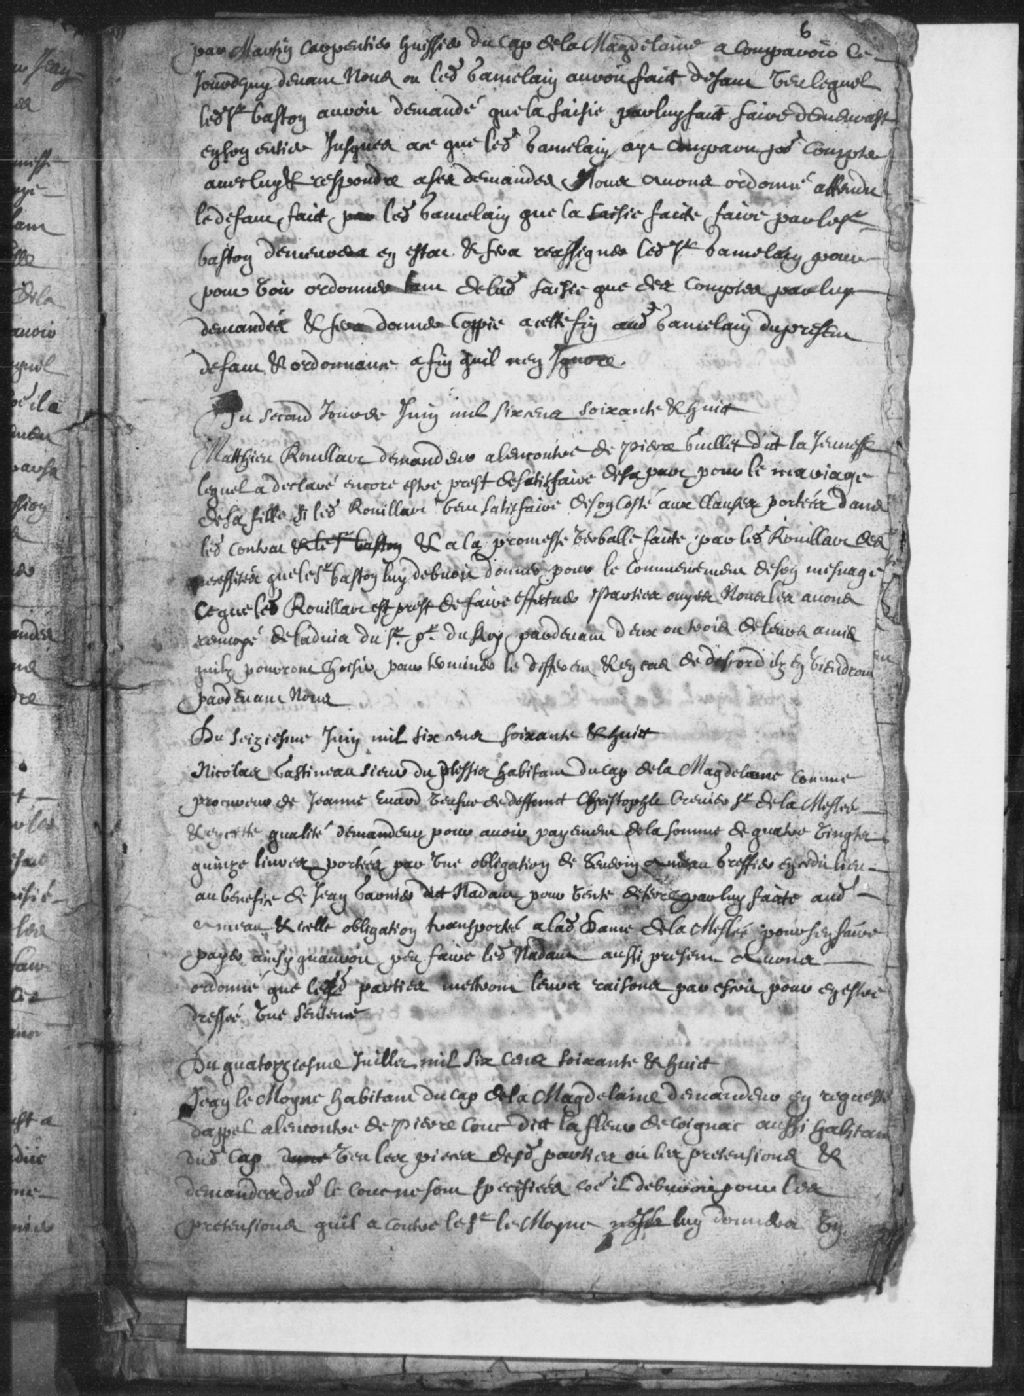 6
par Martin Carpentier huissier du cap de la Magdelaine a Comparoir Ce
Jourdhuy devant Nous ou led Gamelain auroit faict defaut veu lequel
led Sr baston auroit demandé que la saisie par luy faict faire demeurast
en son entier Jusques a ce que led Gamelain aye comparu po Compter
avec luy & respondre a ses demandes Nous avons ordonné attendu
le defaut faict par led Gamelain que la saisie faicte faire par led Sr
baston demeurera en estat & sera reassigner led Sr Gamelain pour
pour voir ordonner tant de lad saisie que des Comptes par luy
demandés & sera donner Coppie a cette fin aud Gamelain du present
defaut & ordonnance a fin quil nen Ignore
Du second Jour de Juin mil six cens soixante & huict
Matthieu Rouillart demandeur alencontre de Pierre Guillet dict la Jeunesse
lequel a declaré encore estre prest de satisfaire de sa part pour le mariage
de sa fille si led Rouillart veut satisfaire de son Costé aux Clauses portées dans
led contrat & le Sr baston & a la promesse verballe faicte par led Rouillart des
necessités que le Sr baston luy debvoit donner pour le Commencement de son mesnage
Ce que led Rouillart est prest de faire effectuer Parties ouyes Nous les avons
renvoyé de ladvis du Sr pr du Roy pardevant deux ou trois de leurs amis
quilz pourront Choisir pour terminer le differend & en cas de discord ilz en viendront
pardevant Nous
Du seiziesme Juin mil six cens soixante & huict
Nicolas Gastineau sieur du plessis habitant du cap de la Magdelaine comme
procureur de Jeanne Enard veufve de deffunct Christophle Crevier Sr de la Meslée
& en cette qualité demandeur pour avoir payement de la somme de quatre vingts
quinze livres portées par une obligation de Severin Ameau Greffier en ced lieu
au benefice de Jean Garnier dict Nadaux pour vente de terre par luy faicte aud
Ameau & icelle obligation transportée a lad Dame de la Meslée pour sen faire
payer ainsy quauroit peu faire led Nadaux aussi present avons
ordonné que lesd parties mettront leurs raisons par escrit pour en estre
dressé une sentence
Du quatorziesme Juillet mil six cens soixante & huict
Jean le Moyne habitant du cap de la Magdelaine demandeur en requeste
dappel alencontre de Pierre Couc dict la fleur de Coignac aussi habitant
dud Cap veu les pieces desd parties ou les pretensions &
demandes dud le Couc ne sont specifiées coe il debvroit pour les
pretensions quil a contre le Sr le Moyne luy donnera en